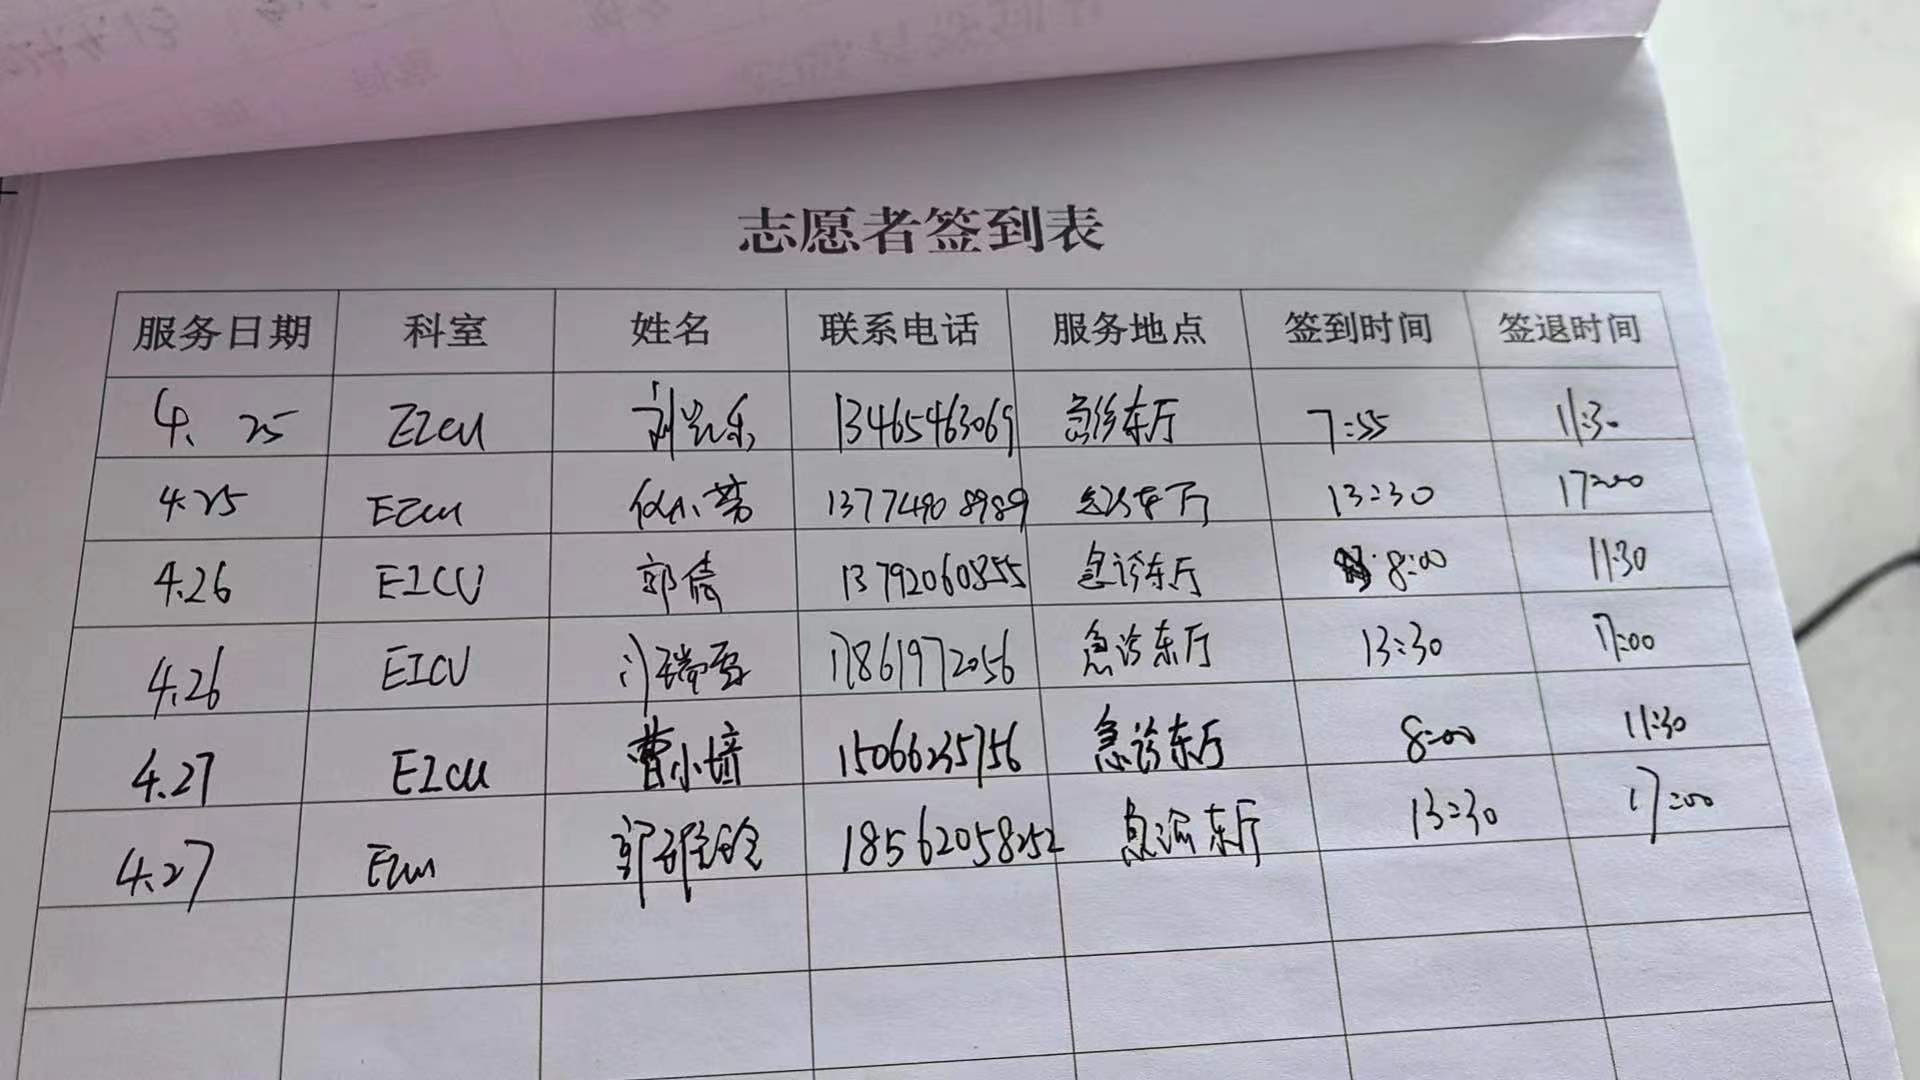 志愿者签到表
服务日期 科室 姓名 联系电话 服务地点 签到时间 签退时间
4.25 EICU 刘 乐 13465463069 急诊东厅 7:55 11:30
4.25 EICU 13774908989 急诊东厅 13:30 17:00
4.26 EICU 郭倩 13792060855 急诊东厅 8:00 11:30
4.26 EICU 门瑞雪 17861972056 急诊东厅 13:30 17:00
4.27 EICU 曹小培 15066235756 急诊东厅 8:00 11:30
4.27 EICU 郭 18562058252 急诊东厅 13:30 17:00